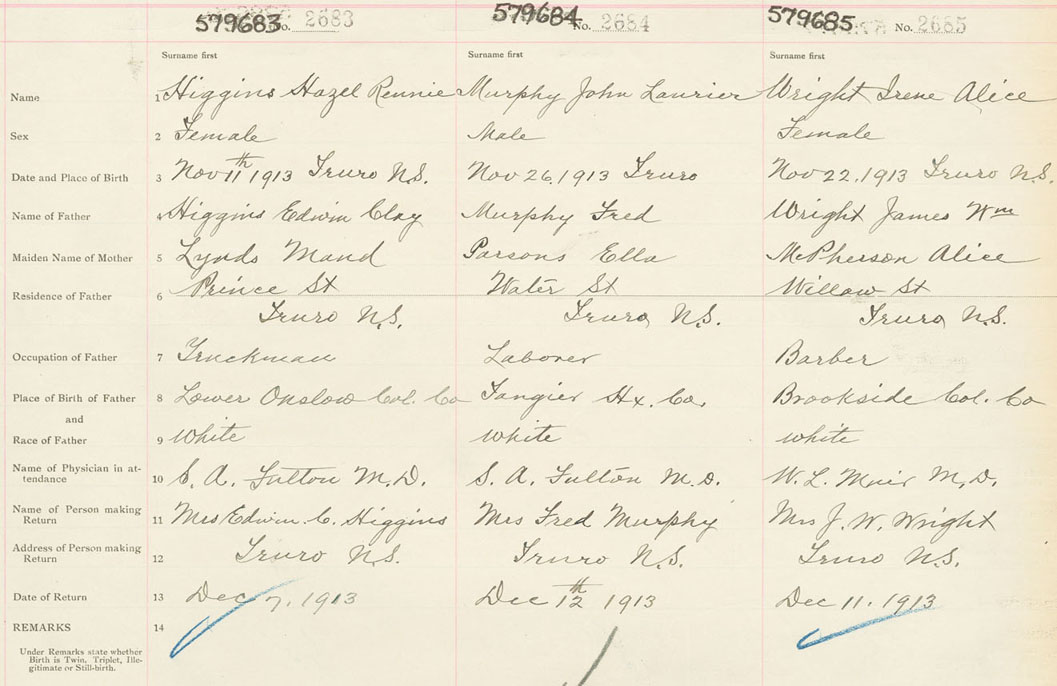 579683 No. 2683 579684 No. 2684 579685 No. 2685
Surname first Surname first Surname first
Name 1 Higgins Hazel Rennie Murphy John Laurier Wright Irene Alice
Sex 2 Female Male Female
Date and Place of Birth 3 Nov 11th 1913 Truro N.S. Nov 26, 1913 Truro Nov 22, 1913 Truro N.S.
Name of Father 4 Higgins Edwin Clay Murphy Fred Wright James Wm
Maiden Name of Mother 5 Lynds Maud Parsons Ella McPherson Alice
Residence of Father 6 Prince St Water St Willow St
Truro N.S. Truro N.S. Truro N.S.
Occupation of Father 7 Truckman Laborer Barber
Place of Birth of Father 8 Lower Onslow Col. Co Tangier Hx. Co. Brookside Col. Co
and
Race of Father 9 White white white
Name of Physician in at-
tendance 10 S. A. Fulton M.D. S. A. Fulton M.D. W. L. Muir M.D.
Name of Person making
Return 11 Mrs Edwin C. Higgins Mrs Fred Murphy Mrs J. W. Wright
Address of Person making
Return 12 Truro N.S. Truro N.S. Truro N.S.
Date of Return 13 Dec 7, 1913 Dec 12th 1913 Dec 11. 1913
REMARKS 14
Under Remarks state whether
Birth is Twin, Triplet, Ille-
gitimate or Still-birth.